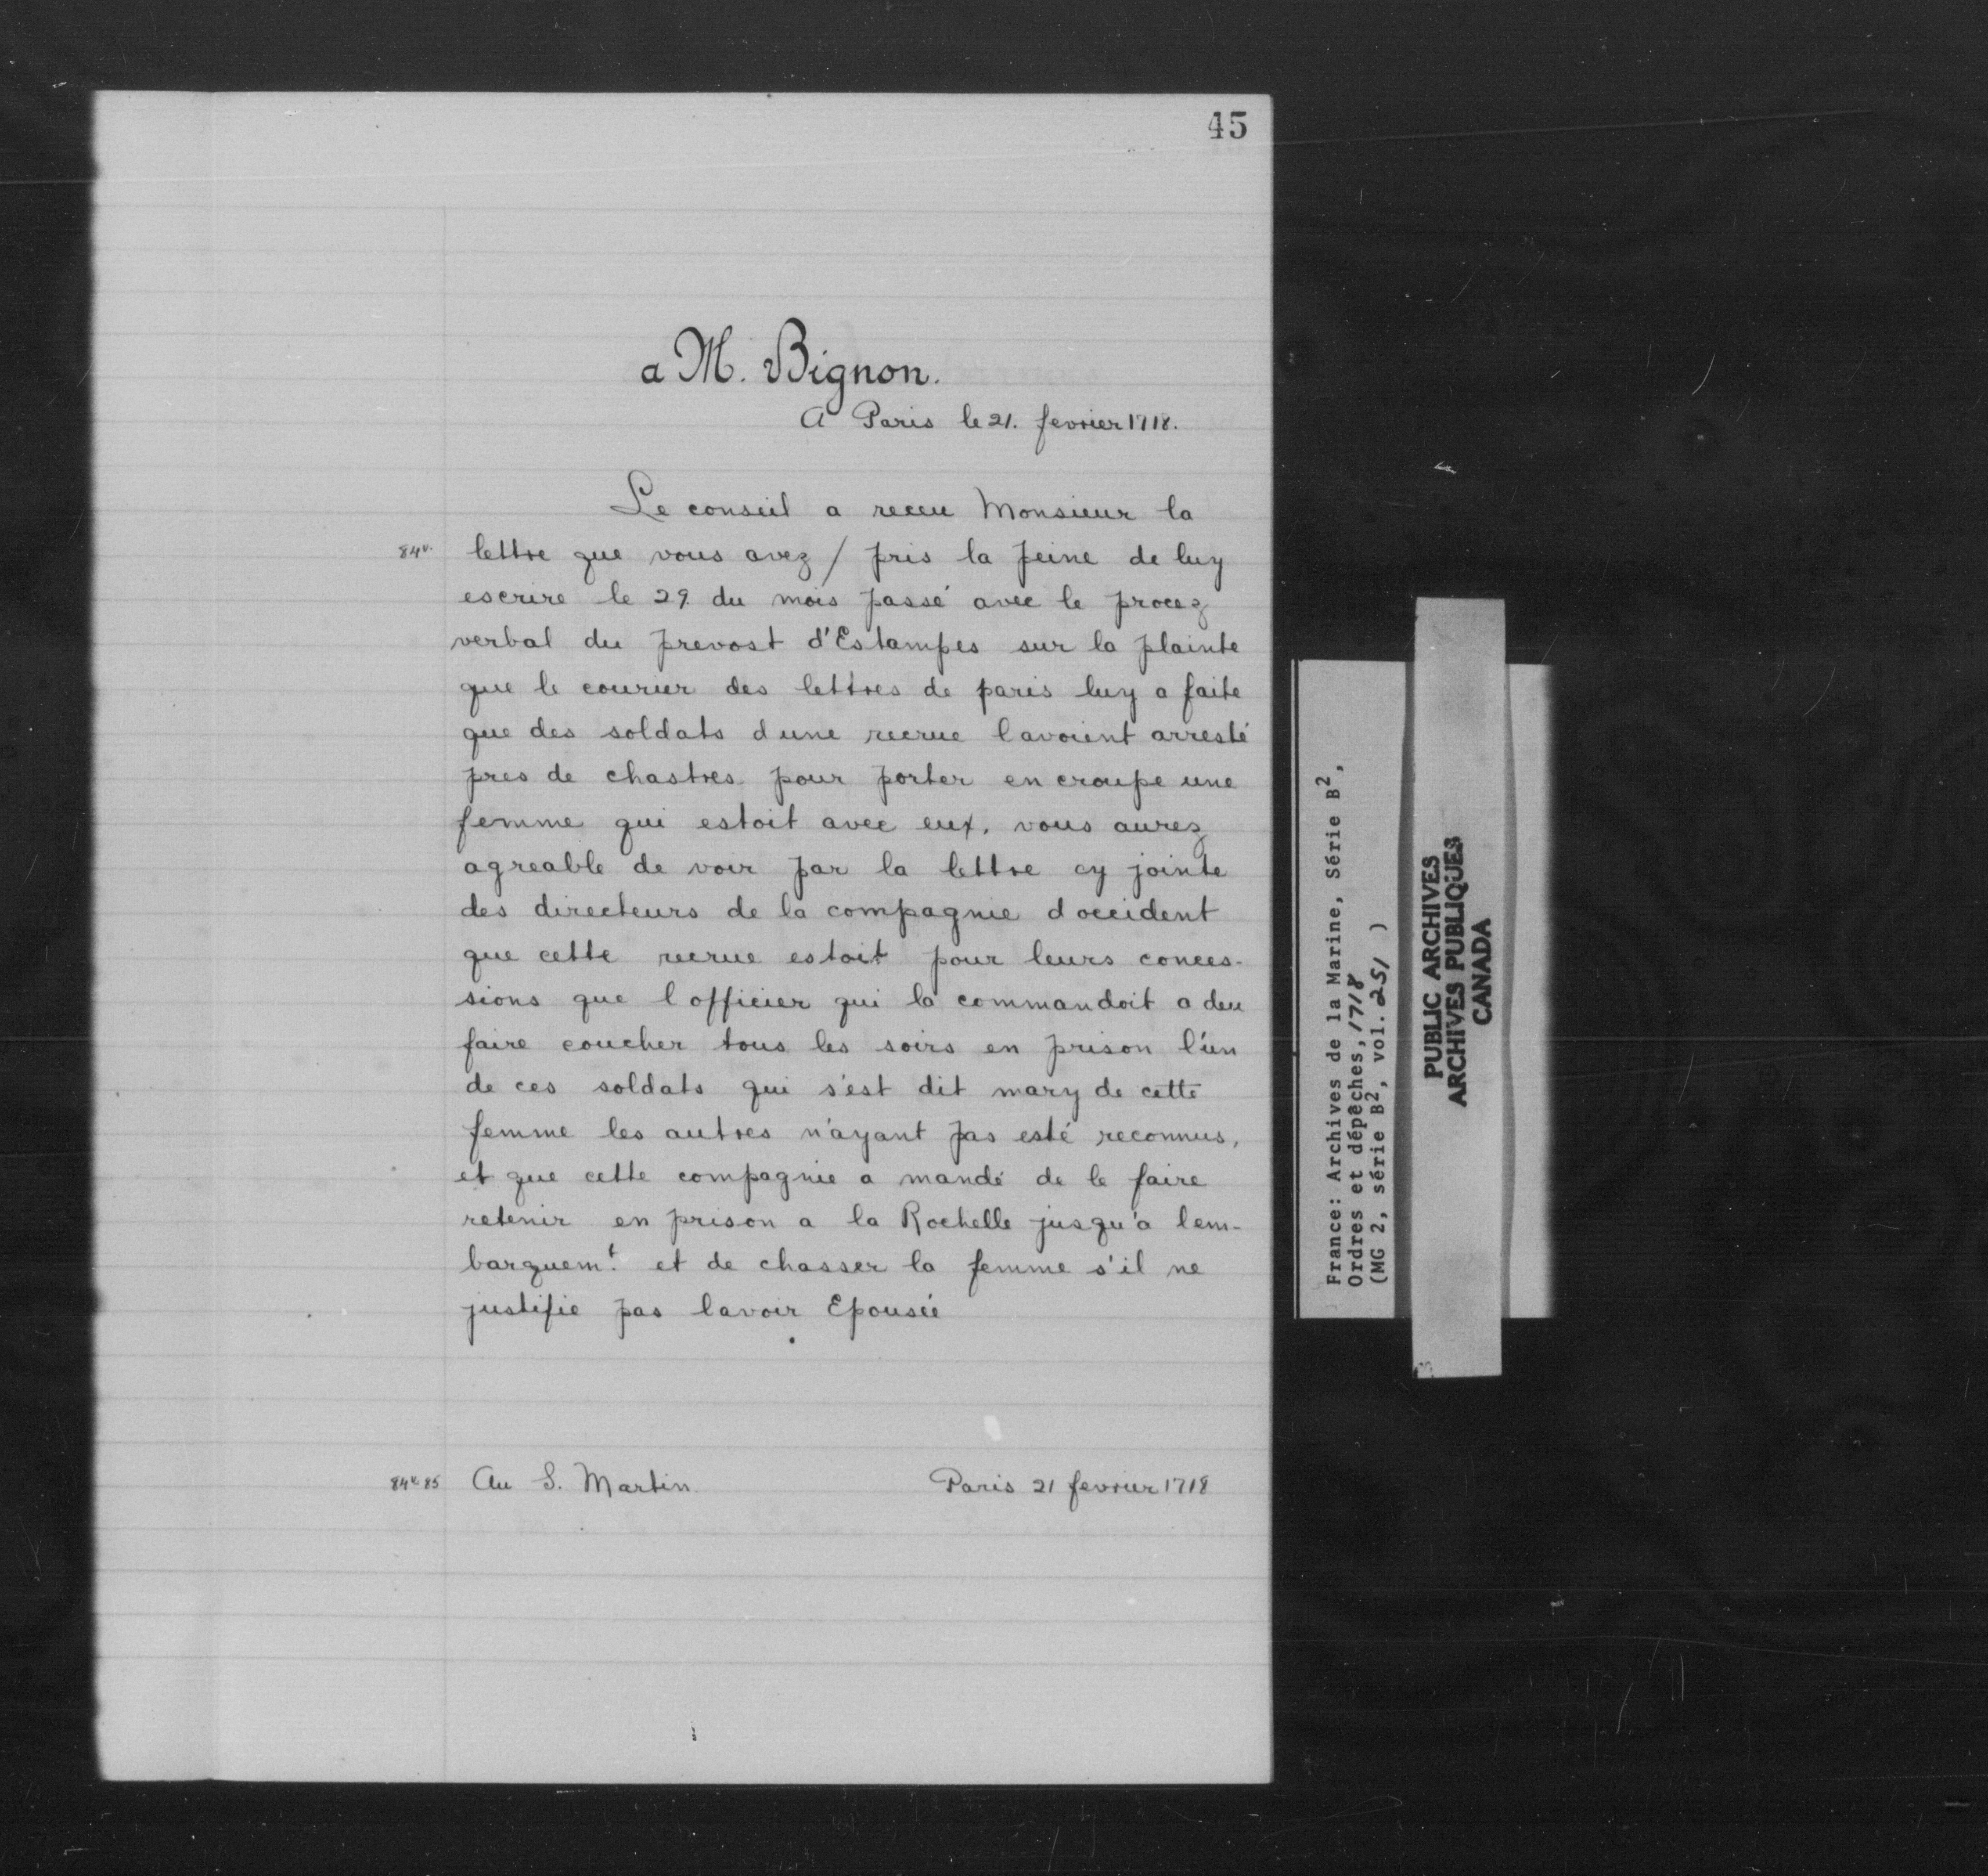 45
a M. Bignon.
A Paris le 21. fevrier 1718.
Le conseil a receu Monsieur la
84v. lettre que vous avez / pris la peine de luy
escrire le 29. du mois passé avec le procez
verbal du prevost d'Estampes sur la plainte
que le courier des lettres de paris luy a faite
que des soldats dune recrue lavoient arresté
pres de chastres pour porter en croupe une
femme qui estoit avec eux. vous aurez
agreable de voir par la lettre cy jointe
des directeurs de la compagnie doccident
que cette recrue estoit pour leurs conces-
sions que lofficier qui la commandoit a deu
faire coucher tous les soirs en prison l'un
de ces soldats qui s'est dit mary de cette
femme les autres n'ayant pas esté reconnus,
et que cette compagnie a mandé de le faire
retenir en prison a la Rochelle jusqu'a lem-
barquem.t et de chasser la femme s'il ne
justifie pas lavoir Epousée
84v.85 Au S. Martin. Paris 21 fevrier 1718
France: Archives de la Marine, Série B2,
Ordres et dépêches, 1718
(MG 2, série B2, vol. 251 )
PUBLIC ARCHIVES
ARCHIVES PUBLIQUES
CANADA